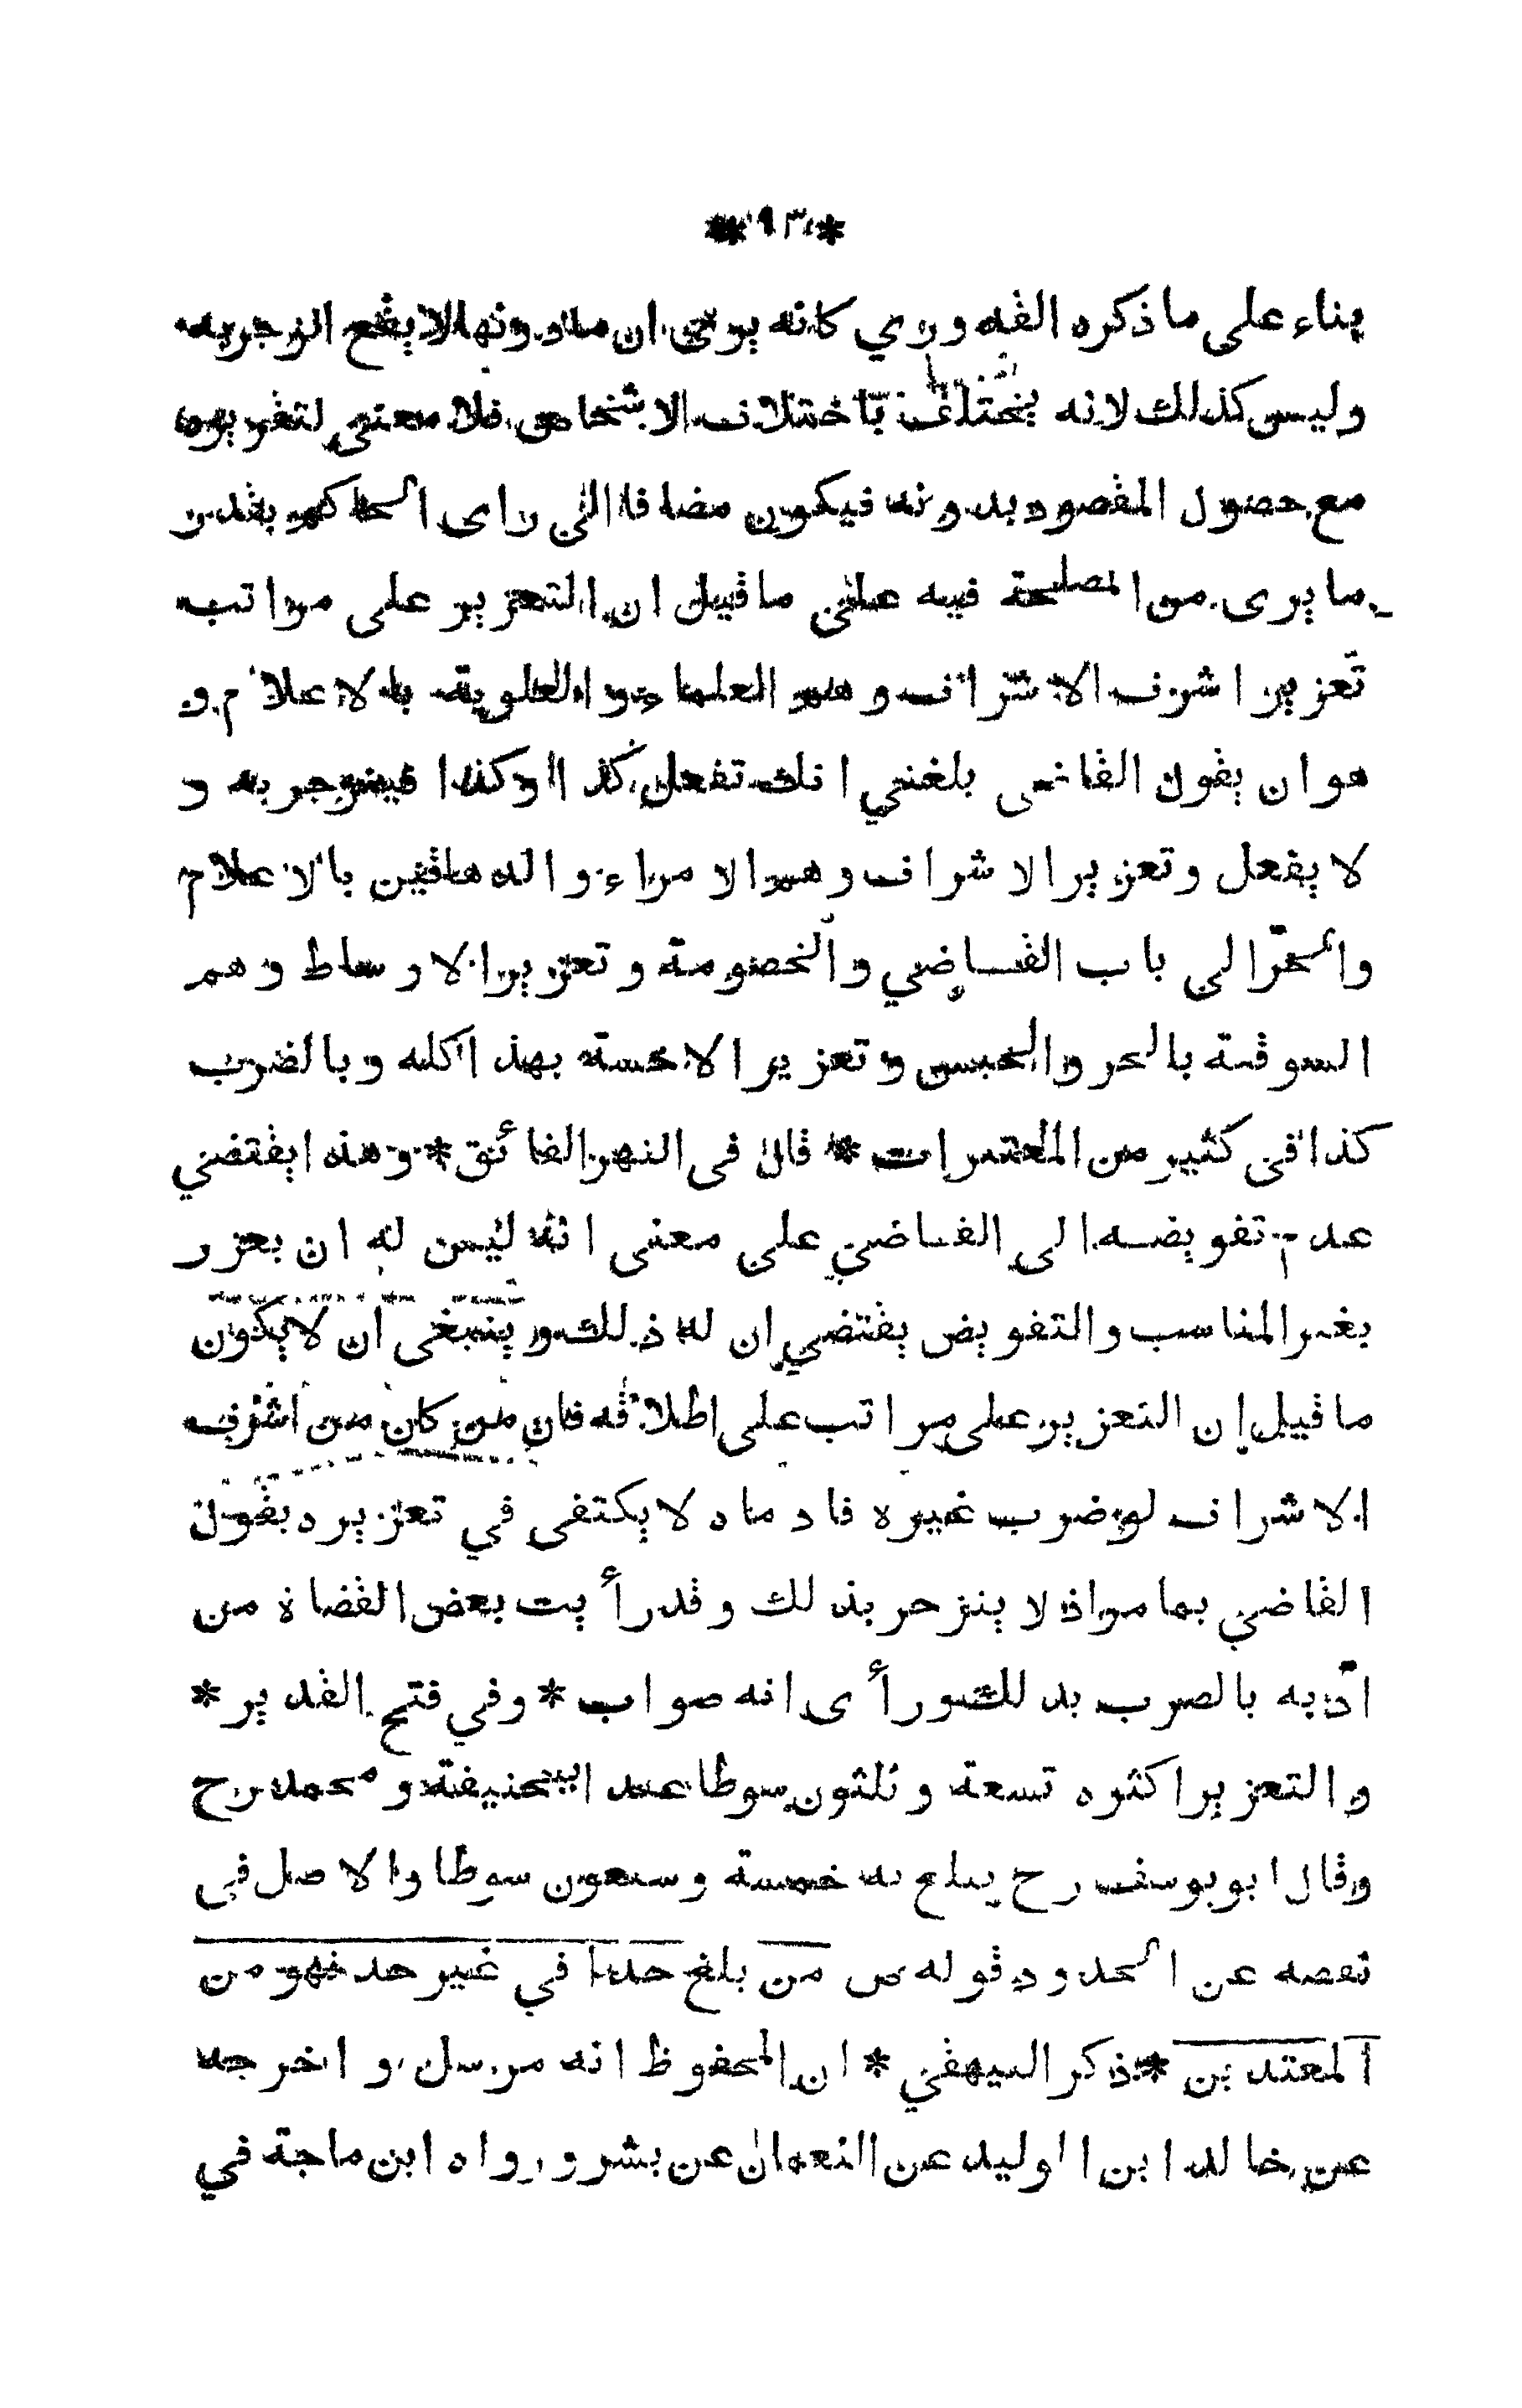 *٩٣*
بناء على ما ذكره القدوري كانه يرى ان مادونها لا يقع الزجر به
وليس كذلك لانه يختلف باختلاف الاشخاص فلا معنى لتقديره
مع حصول المقصود بدونه فيكون مضافا الى راى الحاكم بقدر
ما يرى من المصلحة فيه على ما قيل ان التعزير على مراتب
تعزير اشرف الاشراف وهم العلماء والعلوية بالاعلام و
هو ان يقول القاضى بلغني انك تفعل كذا وكذا فينزجر به و
لا يفعل وتعزير الاشراف وهم الامراء والدهاقين بالاعلام
والجرّ الى باب القاضي والخصومة وتعزير الاوساط وهم
السوقة بالجر والحبس وتعزير الاخسة بهذا كله وبالضرب
كذا فى كثير من المعتبرات * قال فى النهر الفائق * وهذا يقتضي
عدم تفويضه الى القاضي على معنى انه ليس له ان يعزر
بغير المناسب والتفويض يقتضي ان له ذلك وينبغى ان لا يكون
ما قيل ان التعزير على مراتب على اطلاقه فان من كان من اشرف
الاشراف لو ضرب غيره فادماه لا يكتفى في تعزيره بقول
القاضي بما مر اذ لا ينزجر بذلك وقد رأيت بعض القضاة من
ادّبه بالضرب بذلك ورأى انه صواب * وفي فتح القدير *
والتعزير اكثره تسعة وثلثون سوطا عند ابيحنيفة ومحمد رح
وقال ابويوسف رح يبلغ به خمسة وسبعون سوطا والاصل في
نقصه عن الحدود قوله ص من بلغ حدا في غير حد فهو من
المعتدين * ذكر البيهقي * ان المحفوظ انه مرسل و اخرجه
عن خالد ابن الوليد عن النعمان عن بشر و رواه ابن ماجة في